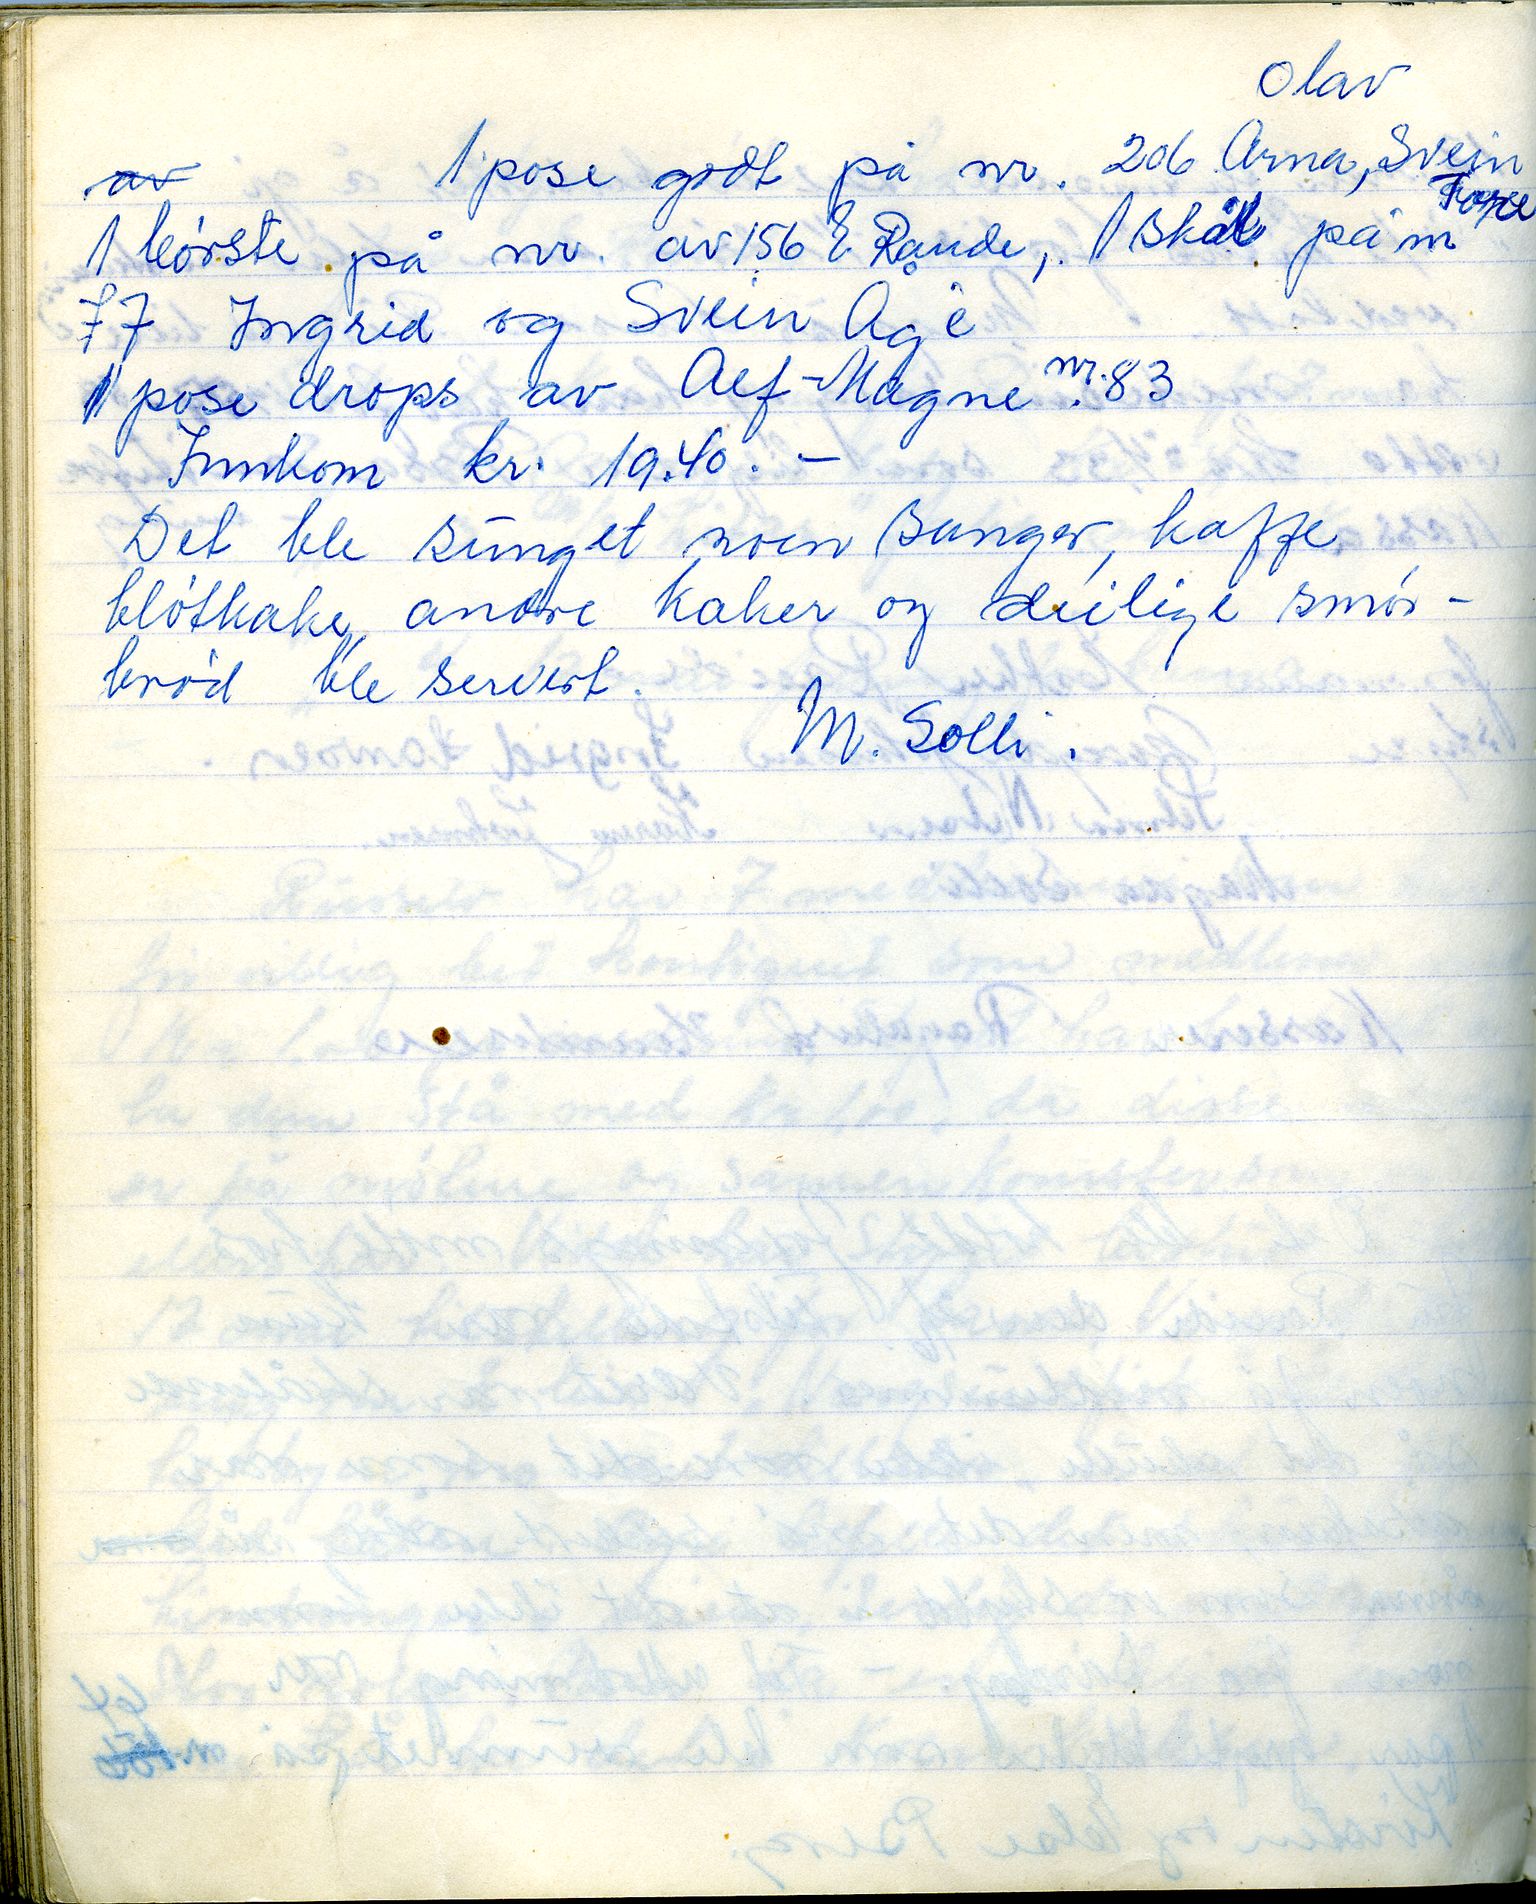 Olav
av 1 pose godt på nr. 206 Arna, Svein
1 børste på nr. av 156 E Rande, 1 skål på nr
77 Ingrid og Svein Åge
1 pose drops av Alf-Magne nr. 83
Innkom kr. 19.40. –
Det ble sunget noen sanger, kaffe
bløtkake, andre kaker og deilige smør-
brød ble servert.
M. Solli.